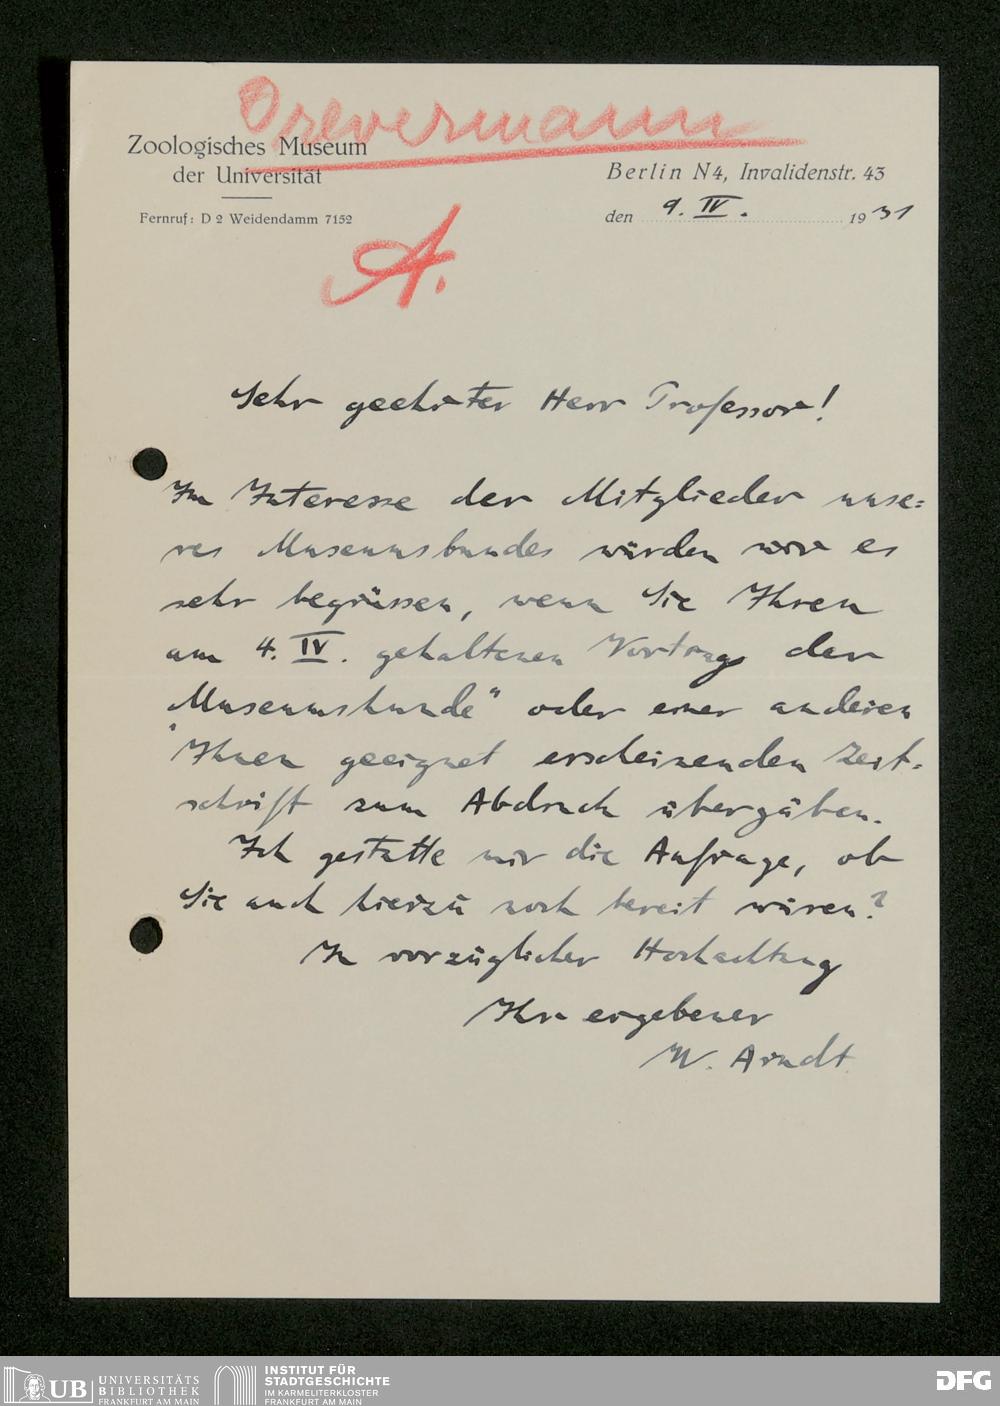 Drevermann
Zoologisches Museum
der Universität
Fernruf: D 2 Weidendamm 7152
Berlin N4, Invalidenstr. 43
den 9. IV. 1931
A.
Sehr geehrter Herr Professor!
Im Interesse der Mitglieder unse=
res Museumsbundes würden wir es
sehr begrüssen, wenn Sie Ihren
am 4. IV. gehaltenen Vortrag der
„Museumskunde" oder einer anderen
Ihnen geeignet erscheinenden Zeit-
schrift zum Abdruck übergäben.
Ich gestatte mir die Anfrage, ob
Sie auch hierzu noch bereit wären?
In vorzüglicher Hochachtung
Ihr ergebener
W. Arndt
UB UNIVERSITÄTS
BIBLIOTHEK
FRANKFURT AM MAIN
INSTITUT FÜR
STADTGESCHICHTE
IM KARMELITERKLOSTER
FRANKFURT AM MAIN
DFG